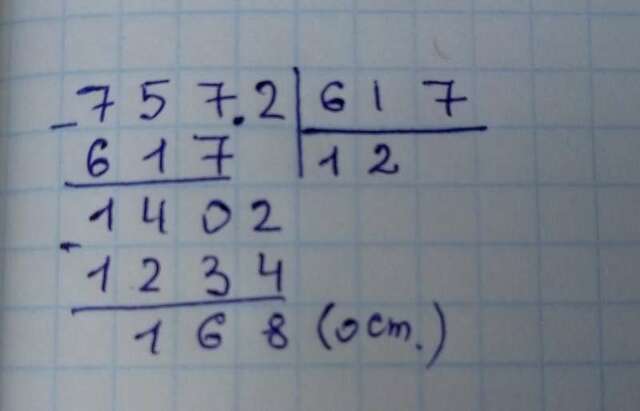 - 7 5 7.2 | 6 1 7
6 1 7 | 1 2
1 4 0 2
- 1 2 3 4
1 6 8 (ост.)